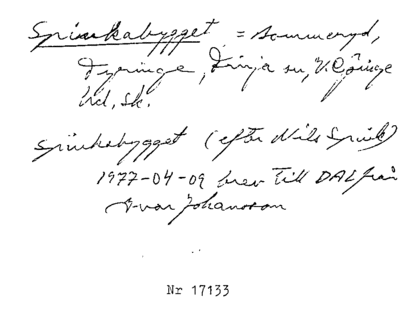 Spinkabygget = Sommaryd,
Tyringe, Finja sn, V. Göinge
hd, Sk.
Spinkabygget (efter Nils Spink)
1977-04-09 brev till DAL från
Ivar Johansson
Nr 17133